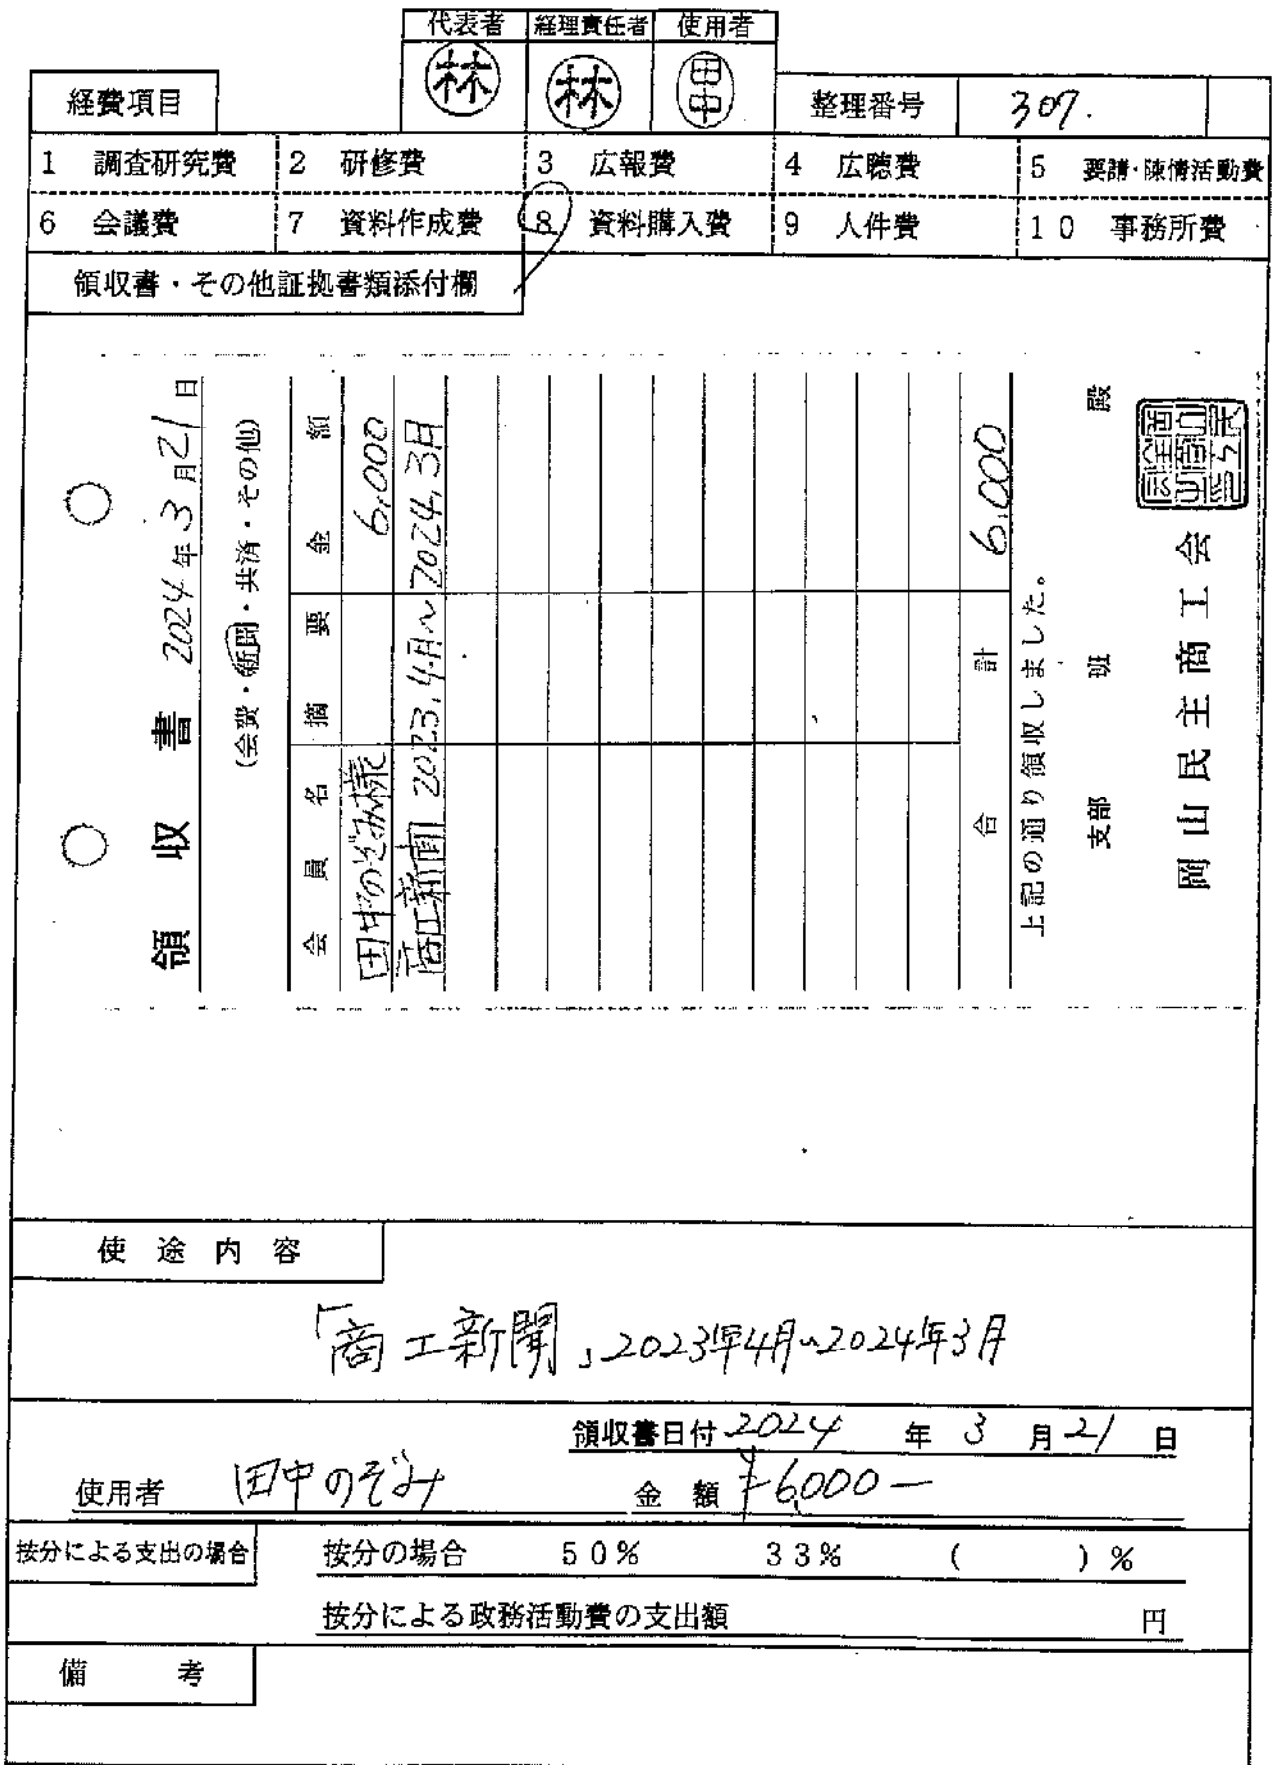 代表者 経理責任者 使用者
林 林 田中
経費項目 整理番号 307.
1 調査研究費 2 研修費 3 広報費 4 広聴費 5 要請・陳情活動費
6 会議費 7 資料作成費 8 資料購入費 9 人件費 10 事務所費
領収書・その他証拠書類添付欄
領収書 2024年3月21日
(会費・新聞・共済・その他)
会員名 摘要 金額
田中のぞみ様 6,000
商工新聞 2023,4月〜2024,3月
合計 6,000
上記の通り領収しました。
支部 班 殿
岡山民主商工会
使途内容
「商工新聞」2023年4月〜2024年3月
領収書日付 2024年3月21日
使用者 田中のぞみ 金額 ¥6,000-
按分による支出の場合 按分の場合 50% 33% ( )%
按分による政務活動費の支出額 円
備考